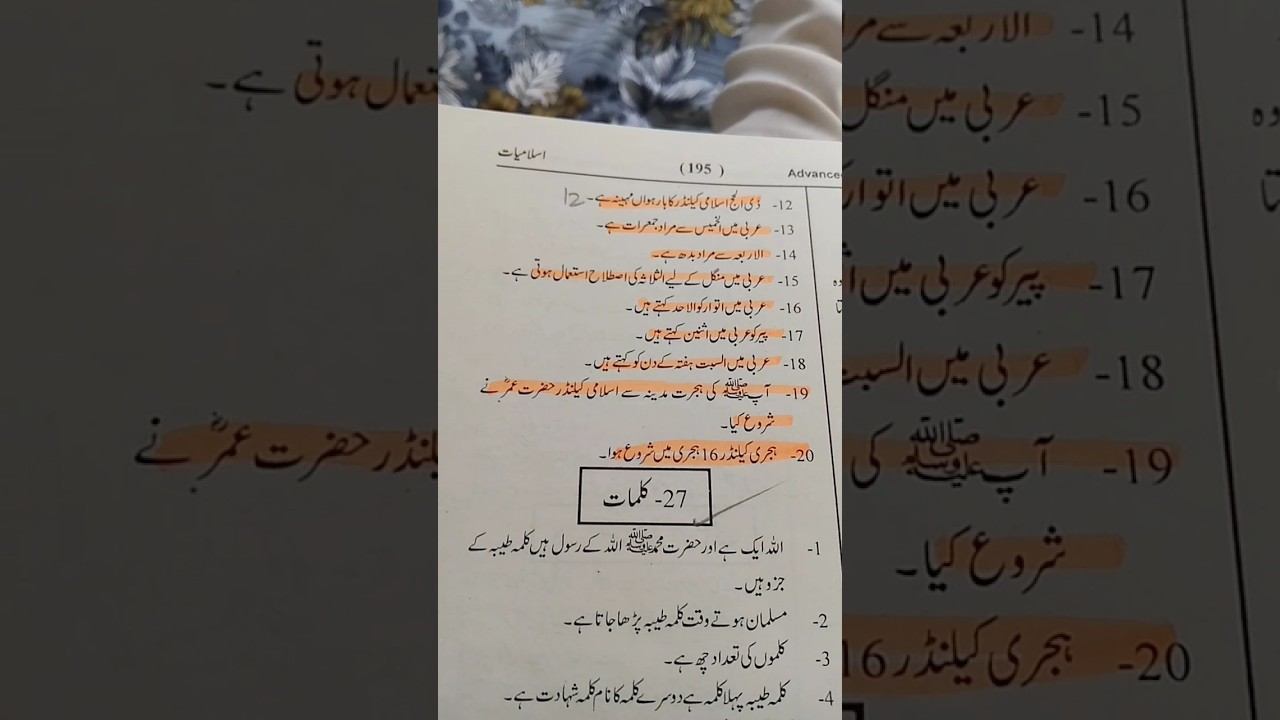 اسلامیات
(195)
Advance
12- ذی الحج اسلامی کیلنڈر کا بارھواں مہینہ ہے۔ 12
13- عربی میں الخمیس سے مراد جمعرات ہے۔
14- الاربعہ سے مراد بدھ ہے۔
15- عربی میں منگل کے لیے الثلاثہ کی اصطلاح استعمال ہوتی ہے۔
16- عربی میں اتوار کو الاحد کہتے ہیں۔
17- پیر کو عربی میں اثنین کہتے ہیں۔
18- عربی میں السبت ہفتہ کے دن کو کہتے ہیں۔
19- آپ ﷺ کی ہجرت مدینہ سے اسلامی کیلنڈر حضرت عمرؓ نے
شروع کیا۔
20- ہجری کیلنڈر 16 ہجری میں شروع ہوا۔
27- کلمات
1- اللہ ایک ہے اور حضرت محمد ﷺ اللہ کے رسول ہیں کلمہ طیبہ کے
جزو ہیں۔
2- مسلمان ہوتے وقت کلمہ طیبہ پڑھا جاتا ہے۔
3- کلموں کی تعداد چھ ہے۔
4- کلمہ طیبہ پہلا کلمہ ہے دوسرے کلمہ کا نام کلمہ شہادت ہے۔